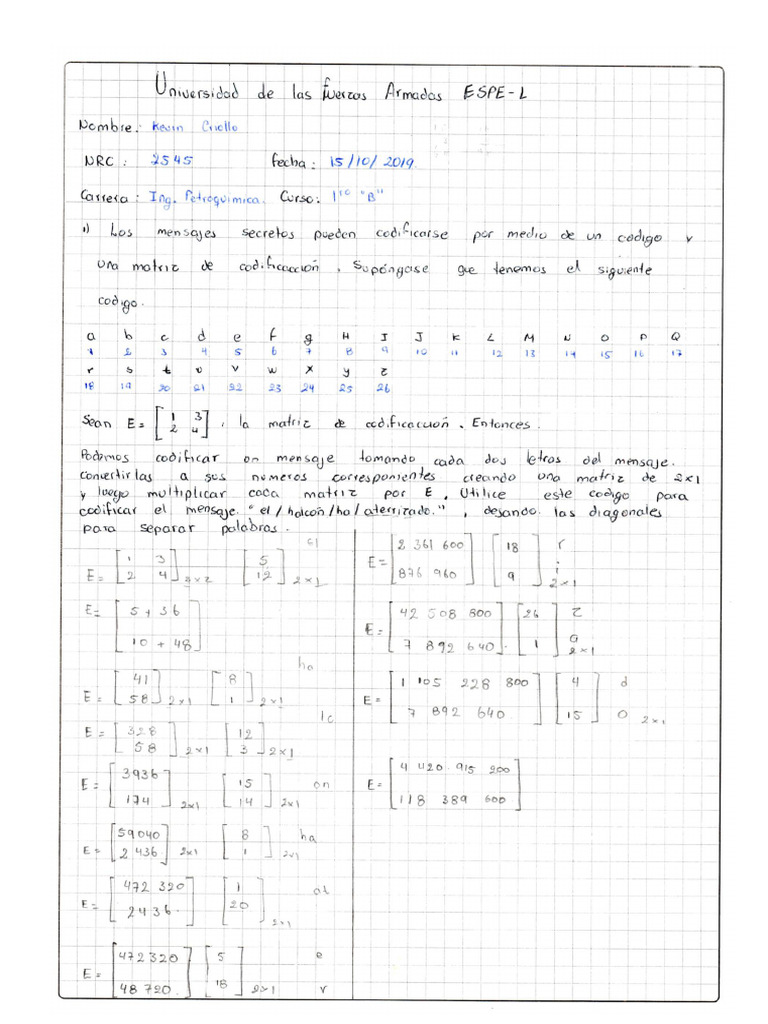 Universidad de las Fuerzas Armadas ESPE-L
Nombre: Kevin Criollo
NRC: 2545 fecha: 15/10/2019
Carrera: Ing. Petroquimica. Curso: 1ro "B"
1) Los mensajes secretos pueden codificarse por medio de un codigo y
una matriz de codificacción, Supóngase que tenemos el siguiente
codigo.
a b c d e f g H I J K L M N O P Q
1 2 3 4 5 6 7 8 9 10 11 12 13 14 15 16 17
r s t u v w x y z
18 19 20 21 22 23 24 25 26
Sean E= [1 3; 2 4], la matriz de codificacción. Entonces.
Podemos codificar un mensaje tomando cada dos letras del mensaje.
convertirlas a sus números correspondientes creando una matriz de 2x1
y luego multiplicar cada matriz por E, Utilice este codigo para
codificar el mensaje "el/halcón/ha/aterrizado.", desando las diagonales
para separar palabras.
E= [1 3; 2 4] 2x2 [5; 12] 2x1 el
E= [5 + 36; 10 + 48]
E= [41; 58] 2x1 [8; 1] 2x1 ha
E= [328; 58] 2x1 [12; 3] 2x1 lc
E= [3936; 174] 2x1 [15; 14] 2x1 on
E= [59040; 2 436] 2x1 [8; 1] 2x1 ha
E= [472 320; 2436.] [1; 20] 2x1 at
E= [472320; 48 720] [5; 18] 2x1 e r
E= [2 361 600; 876 960] [18; 9] 2x1 r i
E= [42 508 800; 7 892 640] [26; 1] 2x1 z a
E= [1 105 228 800; 7 892 640.] [4; 15] 2x1 d o
E= [4 420 915 200; 118 389 600]